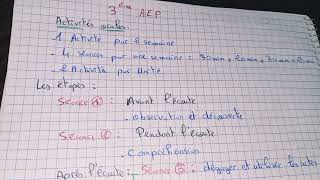 3ème AEP
Activités orales
1 Activité par 2 semaine
- 4 séances par une semaine : 30min + 20min + 30min
- 2 Activités par Unité
Les étapes :
Séance ① : Avant l'écoute
- observation et découverte
Séance ② : Pendant l'écoute
- Compréhension
Après l'écoute : - Séance ③ : dégager et utiliser les actes